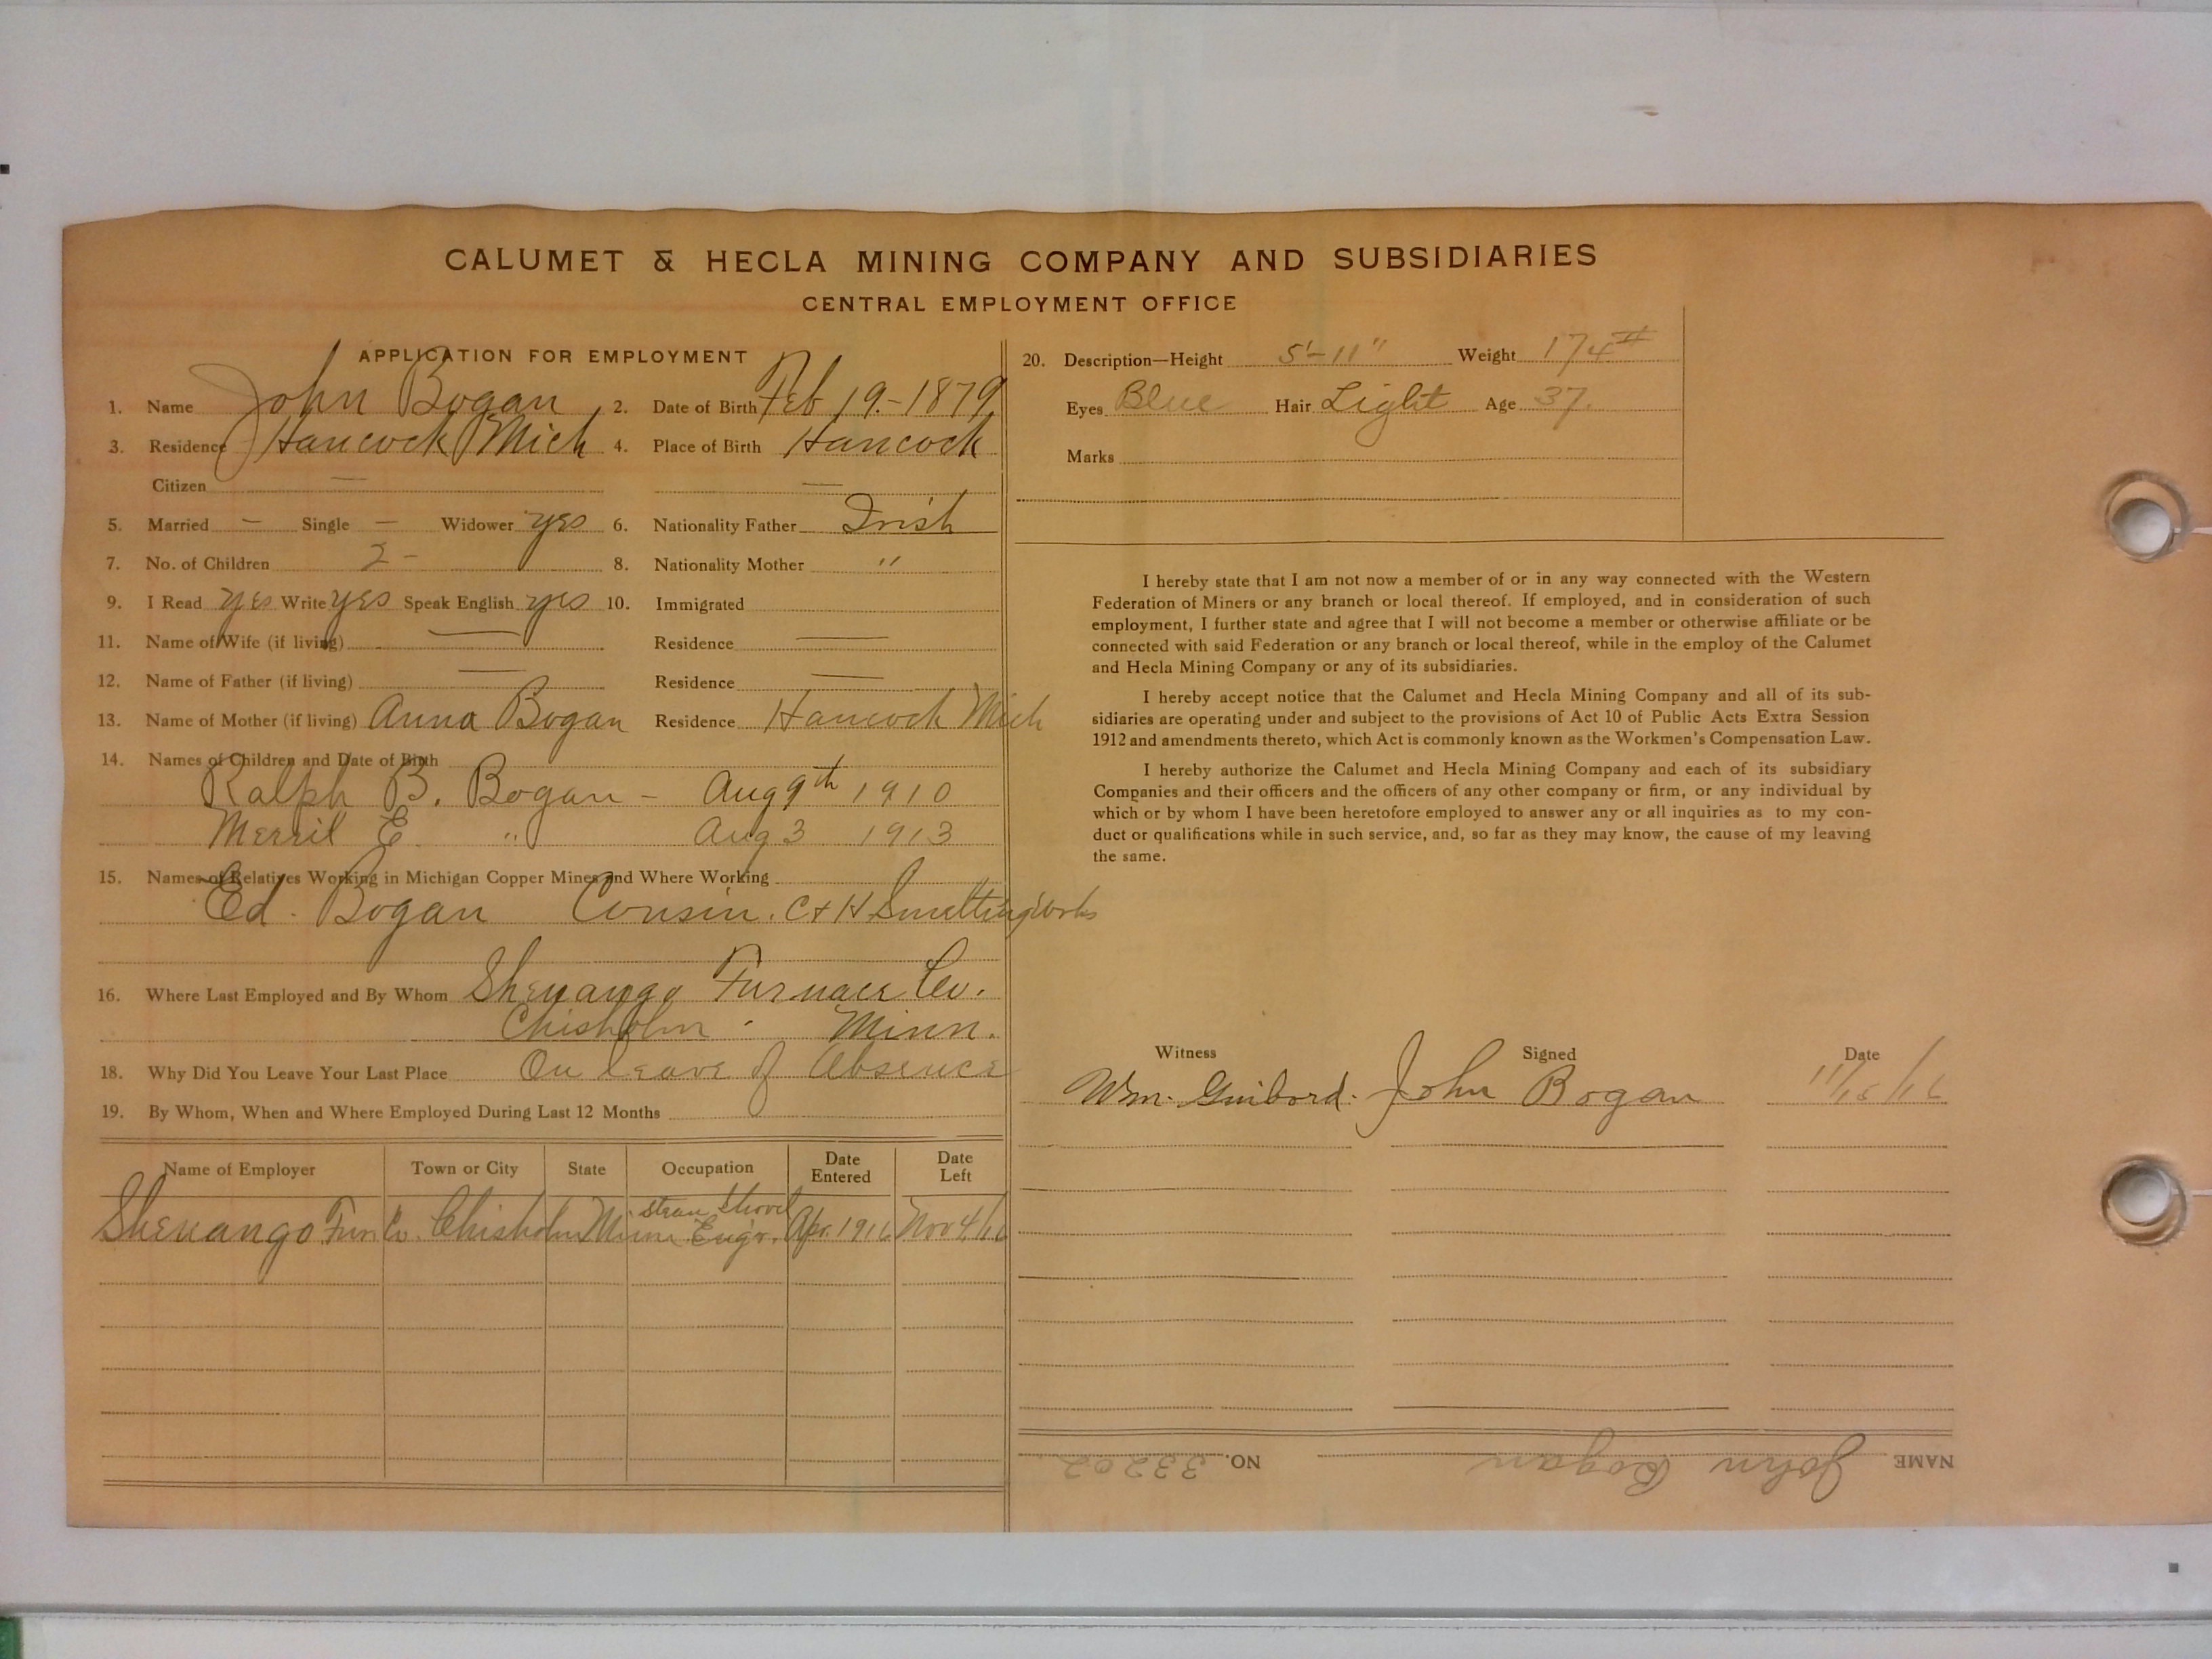 CALUMET & HECLA MINING COMPANY AND SUBSIDIARIES
CENTRAL EMPLOYMENT OFFICE
APPLICATION FOR EMPLOYMENT
1. Name John Bogan 2. Date of Birth Feb 19.-1879
3. Residence Hancock Mich 4. Place of Birth Hancock
Citizen —
5. Married - Single - Widower yes 6. Nationality Father Irish
7. No. of Children 2 - 8. Nationality Mother "
9. I Read yes Write yes Speak English yes 10. Immigrated
11. Name of Wife (if living) — Residence —
12. Name of Father (if living) — Residence —
13. Name of Mother (if living) Anna Bogan Residence Hancock Mich
14. Names of Children and Date of Birth
Ralph B. Bogan - Aug 9th 1910
Merril E. " Aug 3 1913
15. Names of Relatives Working in Michigan Copper Mines and Where Working
Ed. Bogan Cousin. C & H Smelting Works
16. Where Last Employed and By Whom Shenango Furnace Co.
Chisholm - Minn.
18. Why Did You Leave Your Last Place On leave of Absence
19. By Whom, When and Where Employed During Last 12 Months
Name of Employer Town or City State Occupation Date Entered Date Left
Shenango Furn Co. Chisholm Minn. Steam Shovel Engr. Apr. 1916 Nov 4/16
20. Description—Height 5'-11" Weight 174#
Eyes Blue Hair Light Age 37.
Marks
I hereby state that I am not now a member of or in any way connected with the Western
Federation of Miners or any branch or local thereof. If employed, and in consideration of such
employment, I further state and agree that I will not become a member or otherwise affiliate or be
connected with said Federation or any branch or local thereof, while in the employ of the Calumet
and Hecla Mining Company or any of its subsidiaries.
I hereby accept notice that the Calumet and Hecla Mining Company and all of its sub-
sidiaries are operating under and subject to the provisions of Act 10 of Public Acts Extra Session
1912 and amendments thereto, which Act is commonly known as the Workmen's Compensation Law.
I hereby authorize the Calumet and Hecla Mining Company and each of its subsidiary
Companies and their officers and the officers of any other company or firm, or any individual by
which or by whom I have been heretofore employed to answer any or all inquiries as to my con-
duct or qualifications while in such service, and, so far as they may know, the cause of my leaving
the same.
Witness Signed Date
Wm. Guibord. John Bogan 11/15/16
NAME John Bogan NO. 33202